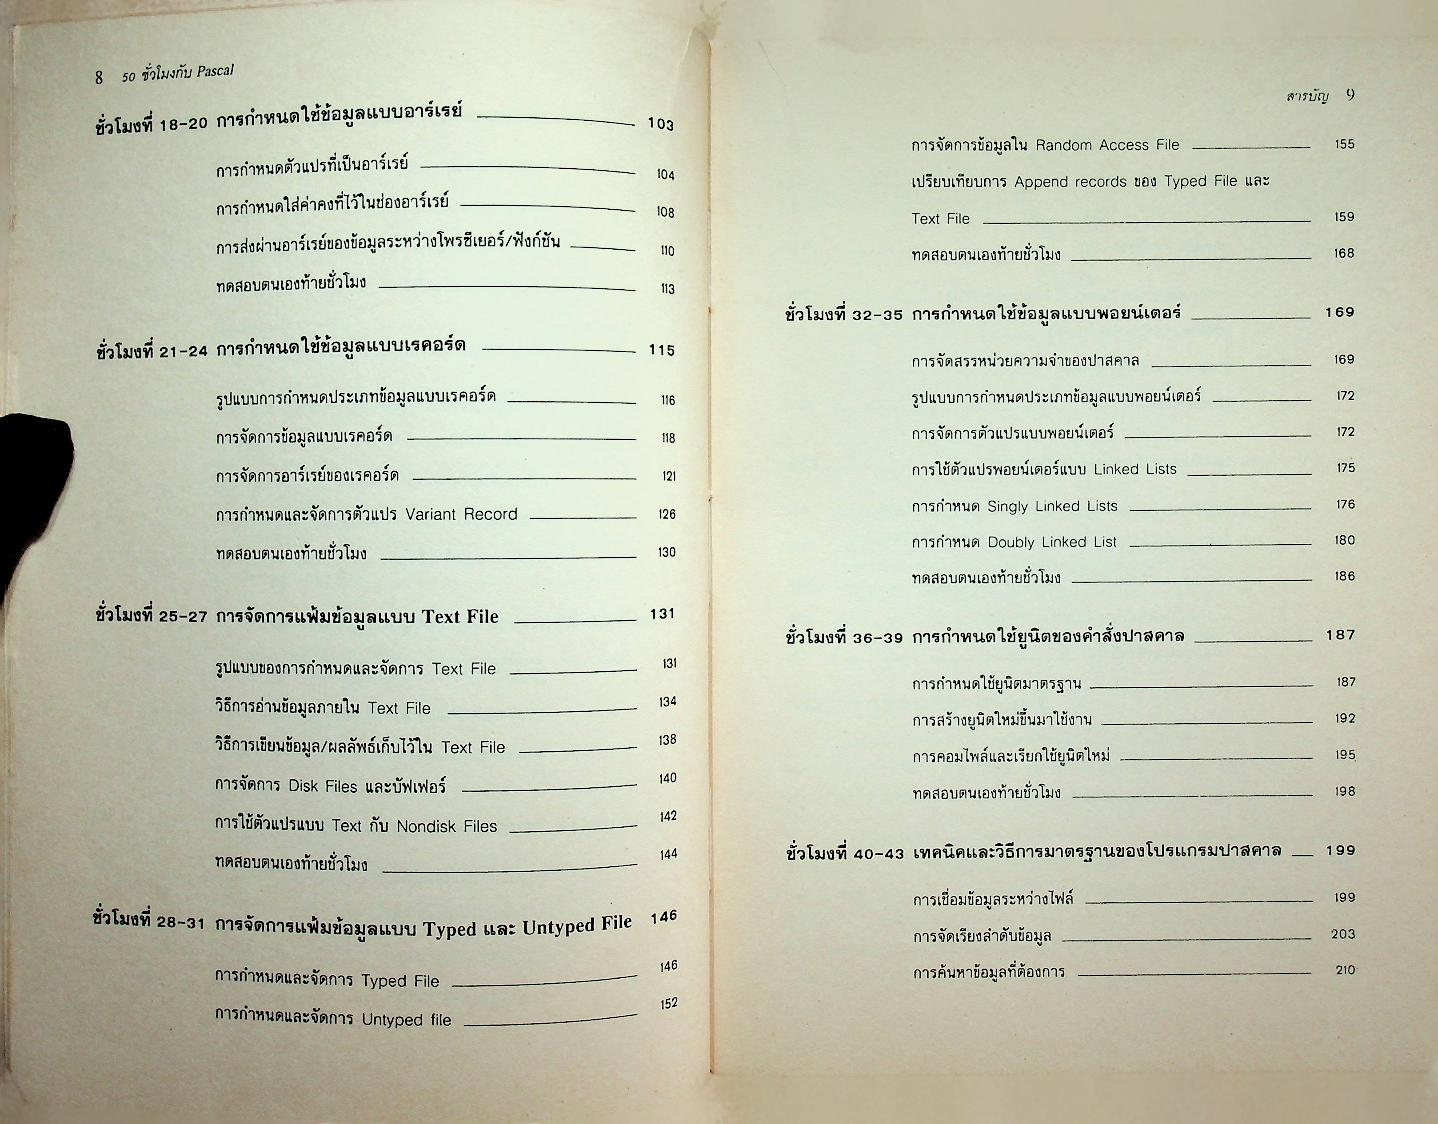 8 50 ชั่วโมงกับ Pascal
ชั่วโมงที่ 18-20 การกำหนดใช้ข้อมูลแบบอาร์เรย์ 103
การกำหนดตัวแปรที่เป็นอาร์เรย์ 104
การกำหนดใส่ค่าคงที่ไว้ในช่องอาร์เรย์ 108
การส่งผ่านอาร์เรย์ของข้อมูลระหว่างโพรซีเยอร์/ฟังก์ชัน 110
ทดสอบตนเองท้ายชั่วโมง 113
ชั่วโมงที่ 21-24 การกำหนดใช้ข้อมูลแบบเรคอร์ด 115
รูปแบบการกำหนดประเภทข้อมูลแบบเรคอร์ด 116
การจัดการข้อมูลแบบเรคอร์ด 118
การจัดการอาร์เรย์ของเรคอร์ด 121
การกำหนดและจัดการตัวแปร Variant Record 126
ทดสอบตนเองท้ายชั่วโมง 130
ชั่วโมงที่ 25-27 การจัดการแฟ้มข้อมูลแบบ Text File 131
รูปแบบของการกำหนดและจัดการ Text File 131
วิธีการอ่านข้อมูลภายใน Text File 134
วิธีการเขียนข้อมูล/ผลลัพธ์เก็บไว้ใน Text File 138
การจัดการ Disk Files และบัฟเฟอร์ 140
การใช้ตัวแปรแบบ Text กับ Nondisk Files 142
ทดสอบตนเองท้ายชั่วโมง 144
ชั่วโมงที่ 28-31 การจัดการแฟ้มข้อมูลแบบ Typed และ Untyped File 146
การกำหนดและจัดการ Typed File 146
การกำหนดและจัดการ Untyped file 152
สารบัญ 9
การจัดการข้อมูลใน Random Access File 155
เปรียบเทียบการ Append records ของ Typed File และ
Text File 159
ทดสอบตนเองท้ายชั่วโมง 168
ชั่วโมงที่ 32-35 การกำหนดใช้ข้อมูลแบบพอยน์เตอร์ 169
การจัดสรรหน่วยความจำของปาสคาล 169
รูปแบบการกำหนดประเภทข้อมูลแบบพอยน์เตอร์ 172
การจัดการตัวแปรแบบพอยน์เตอร์ 172
การใช้ตัวแปรพอยน์เตอร์แบบ Linked Lists 175
การกำหนด Singly Linked Lists 176
การกำหนด Doubly Linked List 180
ทดสอบตนเองท้ายชั่วโมง 186
ชั่วโมงที่ 36-39 การกำหนดใช้ยูนิตของคำสั่งปาสคาล 187
การกำหนดใช้ยูนิตมาตรฐาน 187
การสร้างยูนิตใหม่ขึ้นมาใช้งาน 192
การคอมไพล์และเรียกใช้ยูนิตใหม่ 195
ทดสอบตนเองท้ายชั่วโมง 198
ชั่วโมงที่ 40-43 เทคนิคและวิธีการมาตรฐานของโปรแกรมปาสคาล 199
การเชื่อมข้อมูลระหว่างไฟล์ 199
การจัดเรียงลำดับข้อมูล 203
การค้นหาข้อมูลที่ต้องการ 210